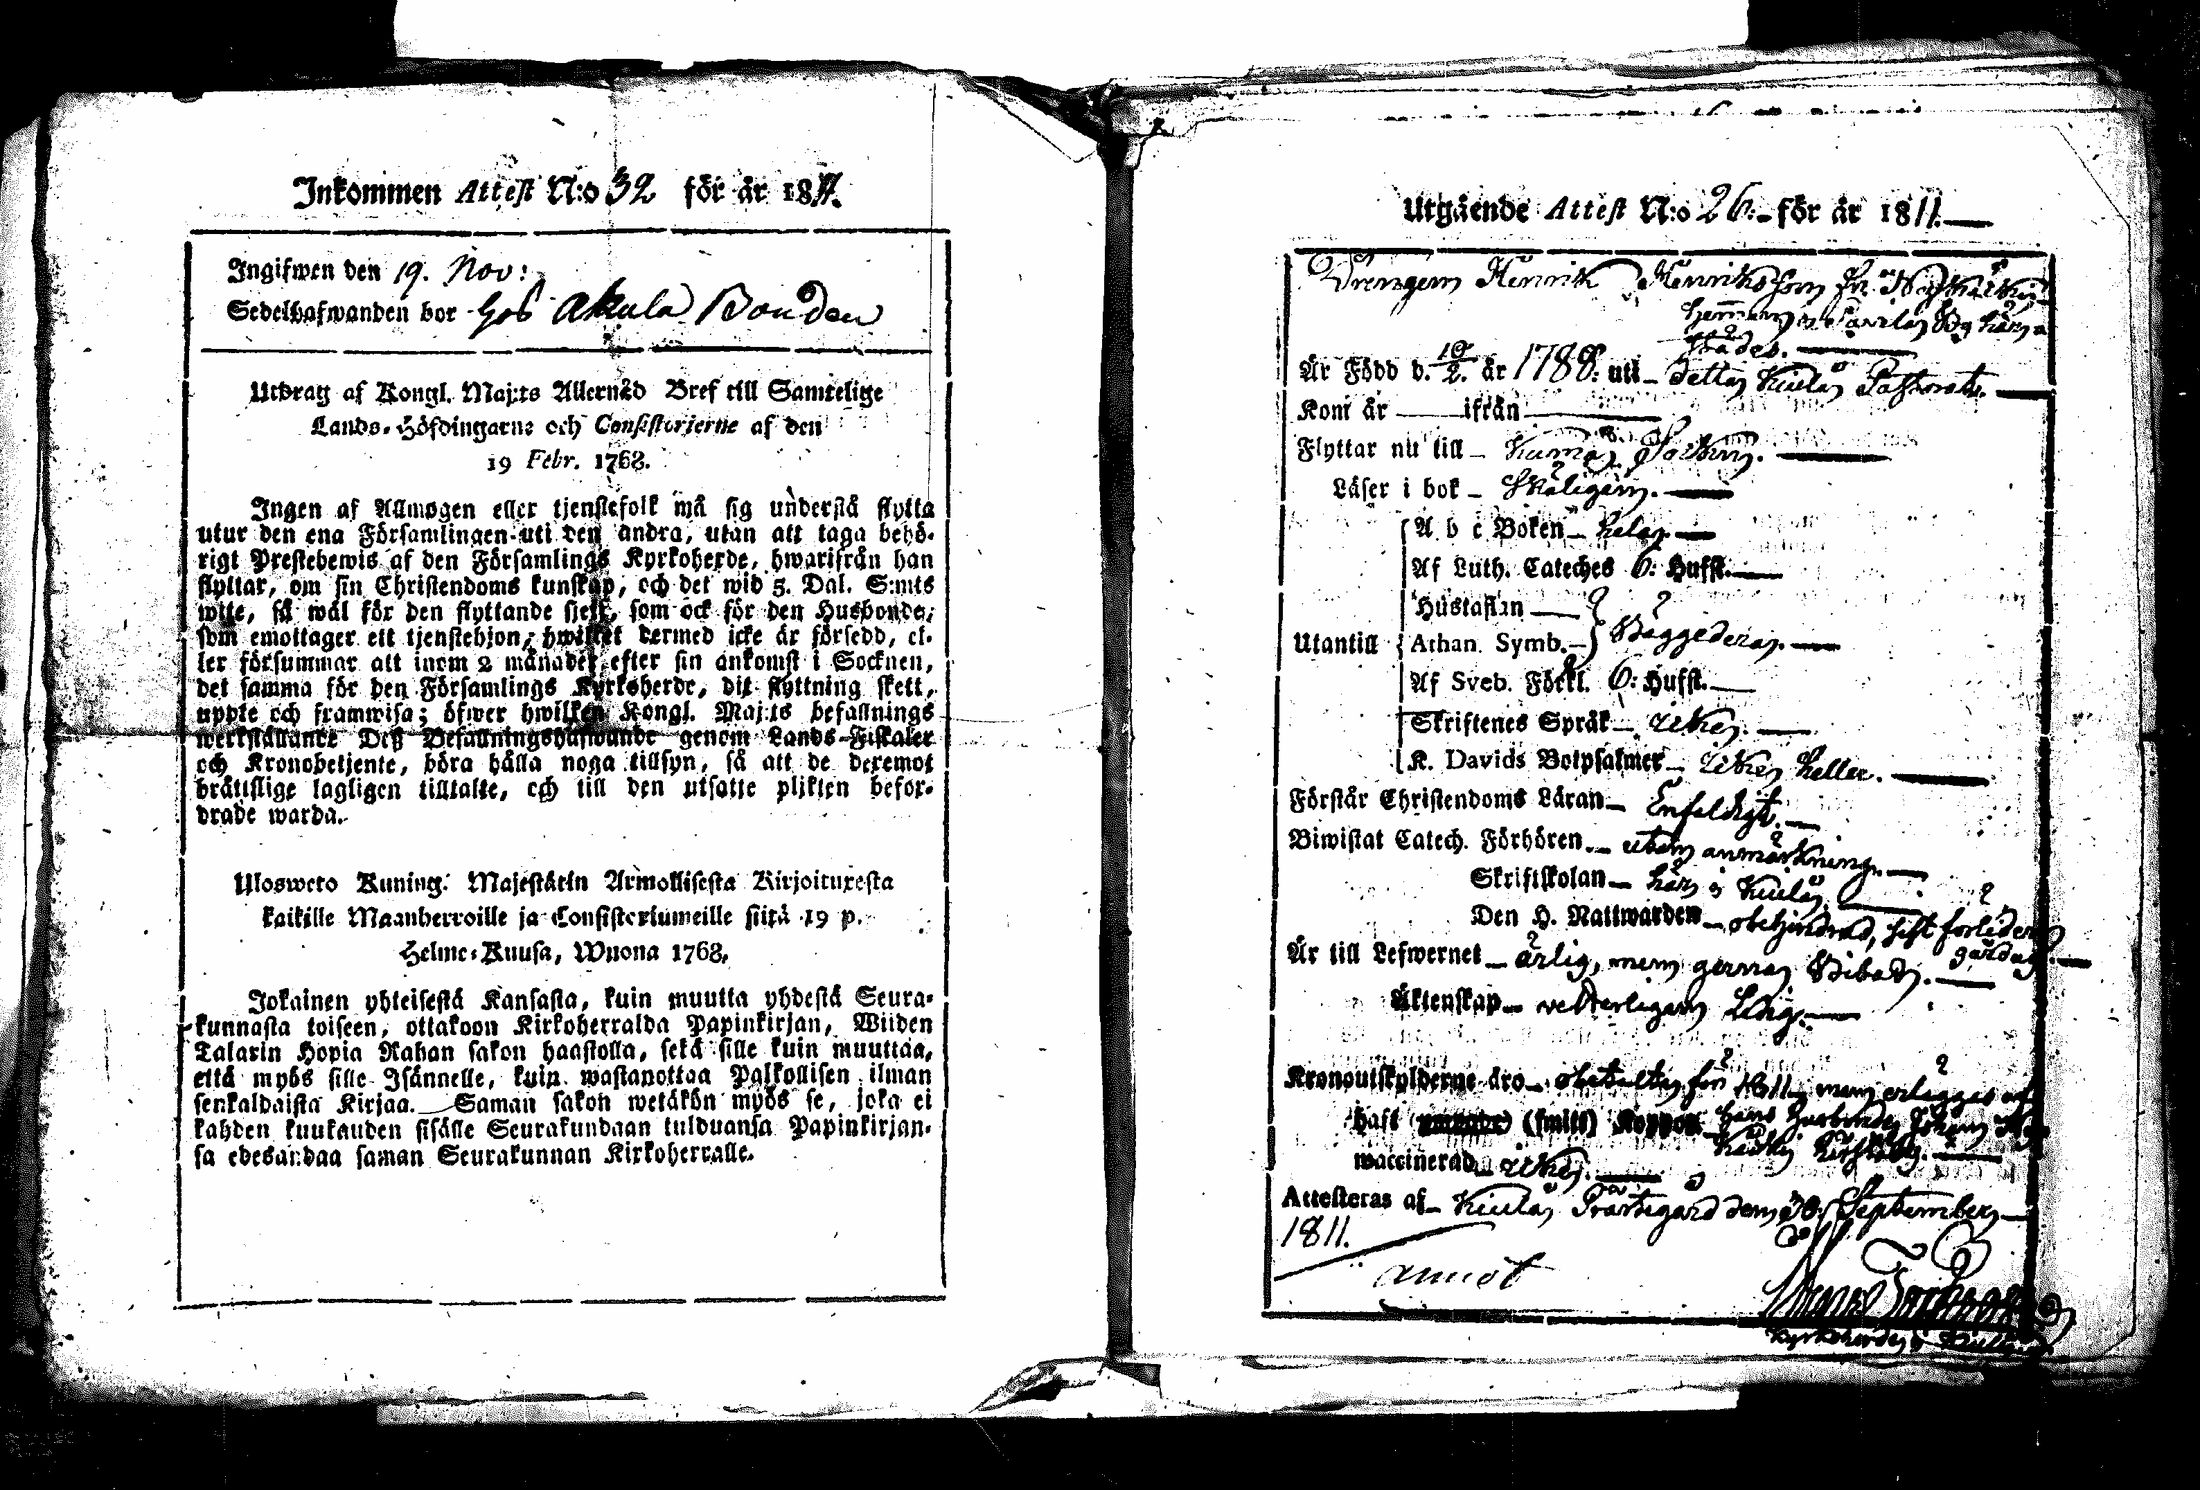 Inkommen Attest N:o 32 för år 1811.
Ingifwen den 19. Nov:
Sedelhafwanden bor hos Akula Bonden
Utdrag af Kongl. Maj:ts Allernåd Bref till Samtelige
Lands-Höfdingarne och Consistorierne af den
19 Febr. 1768.
Ingen af Allmogen eller tjenstefolk må sig understå flytta
utur den ena Församlingen uti den andra, utan att taga behö-
rigt Prestebewis af den Församlings Kyrkoherde, hwarifrån han
flyttar, om sin Christendoms kunskap, och det wid 5. Dal. S:mts
wite, så wäl för den flyttande sjelf, som ock för den Husbonde,
som emottager ett tjenstehjon, hwilket dermed icke är försedd, el-
ler försummar att inom 2 månader efter sin ankomst i Socknen,
det samma för den Församlings Kyrkoherde, dit flyttning skett,
uppte och framwisa; öfwer hwilken Kongl. Maj:ts befallnings
werkställande Deß Befallningshafwande genom Lands-Fiskaler
och Kronobetjente, böra hålla noga tillsyn, så att de deremot
brätislige lagligen tilltalte, och till den utsatte plikten befor-
drade warda.
Ulosweto Kuning. Majestätin Armollisesta Kirjoituxesta
kaikille Maanherroille ja Consistoriumeille siitä 19 p.
Helme-Kuusa, Wuona 1768.
Jokainen yhteisestä Kansasta, kuin muutta yhdestä Seura-
kunnasta toiseen, ottakoon Kirkoherralda Papinkirjan, Wiiden
Talarin Hopia Rahan sakon haastolla, sekä sille kuin muuttaa,
että myös sille Isännelle, kuin wastanottaa Palkollisen ilman
senkaldaista Kirjaa. Saman sakon wetäkön myös se, joka ei
kahden kuukauden sisälle Seurakundaan tulduansa Papinkirjan-
sa edesandaa saman Seurakunnan Kirkoherralle.
Utgående Attest N:o 26. för år 1811.
Drengen Henrik Henriksson fr.
här
städes.
Är Född d. 10/2. år 1788. uti detta Kiulo Pastorat.
Kom år ifrån
Flyttar nu till Kumo Socken.
Läser i bok Skäligen.
A b c Boken hela.
Af Luth. Cateches 6: Hufst.
Hustaflan
Utantill Athan. Symb. Bäggedera.
Af Sveb. Förkl. 6: Hufst.
Skriftenes Språk icke.
K. Davids Botpsalmer icke heller.
Förstår Christendoms Läran Enfaldigt.
Biwistat Catech. Förhören utan anmärkning.
Skriftskolan här i Kiulo.
Den H. Nattwarden obehindrad, sist förleden
gårdag.
Är till Lefwernet ärlig, men
Äktenskap veterligen Ledig.
Kronoutskylderne äro obetalta för 1811, men erlägges af
haft (smitt) Koppor hans Husbonde Johan
waccinerad icke.
Attesteras af Kiulo Prästegård den 30. September
1811.
Kyrkoherde i Kiulo.